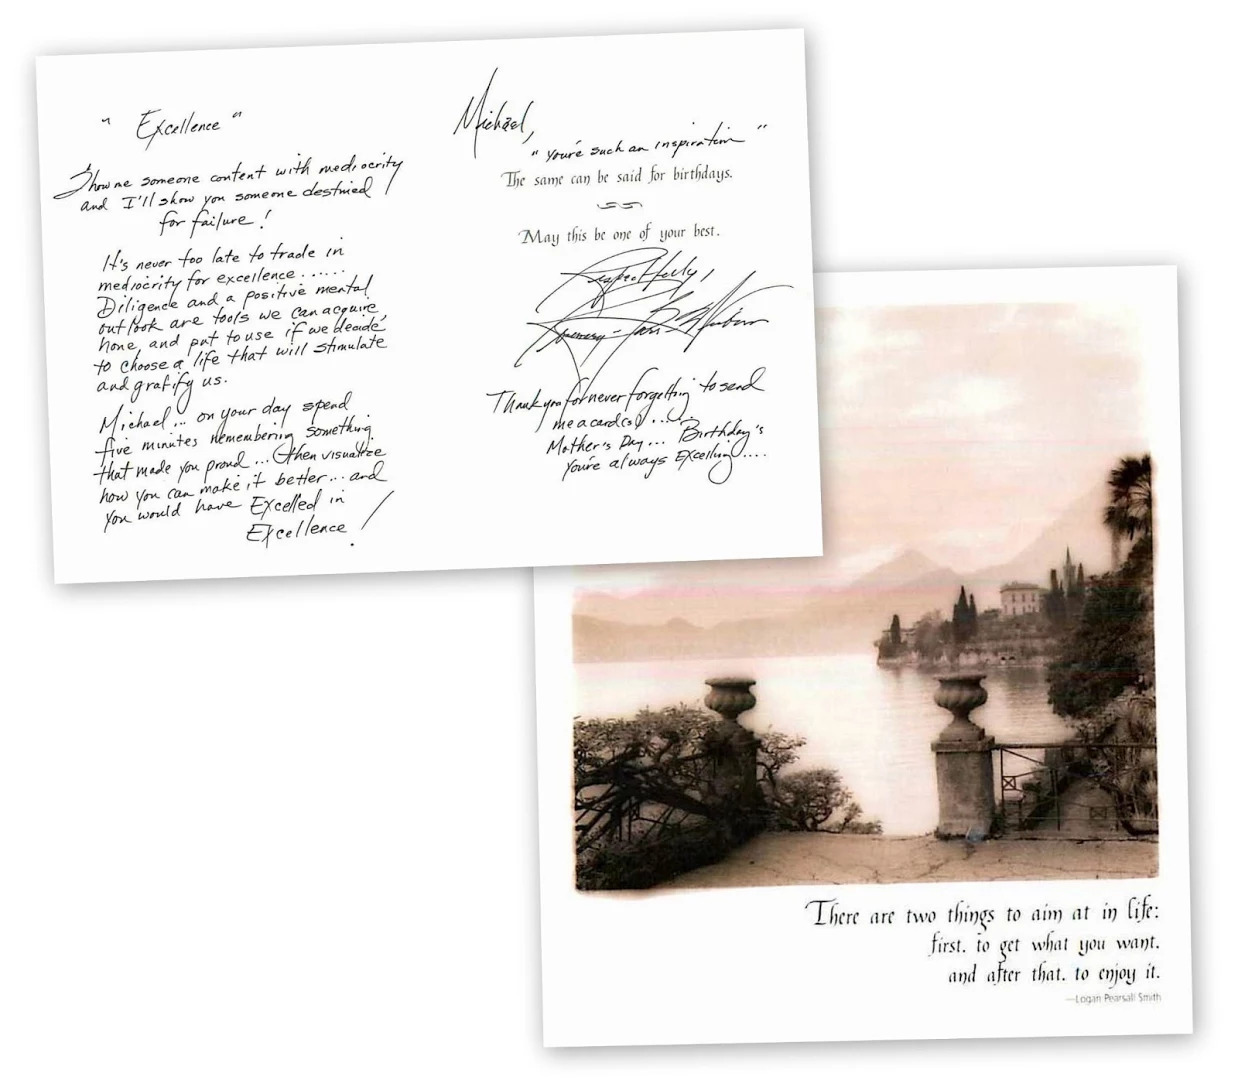 " Excellence "
Show me someone content with mediocrity
and I'll show you someone destined
for failure!
It's never too late to trade in
mediocrity for excellence......
Diligence and a positive mental
outlook are tools we can acquire,
hone, and put to use if we decide
to choose a life that will stimulate
and gratify us.
Michael... on your day spend
five minutes remembering something
that made you proud... then visualize
how you can make it better... and
you would have Excelled in
Excellence!
Michael,
"You're such an inspiration"
The same can be said for birthdays.
May this be one of your best.
Respectfully,
Thank you for never forgetting to send
me a card(s)....
Mother's Day... Birthday's
You're always Excelling....
There are two things to aim at in life:
first, to get what you want,
and after that, to enjoy it.
—Logan Pearsall Smith